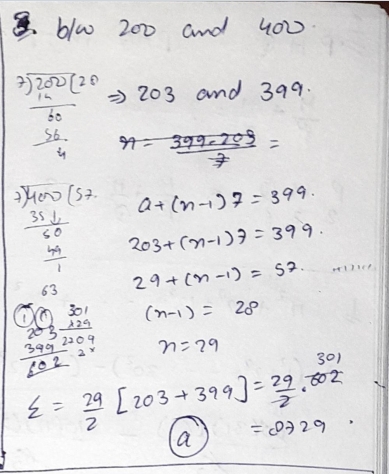 3. b/w 200 and 400.
7)200(28
14
60
56
4
⇒ 203 and 399.
n = 399-203/7 =
7)400(57.
35↓
50
49
1
63
a+(n-1)7 = 399.
203+(n-1)7 = 399.
29+(n-1) = 57.
(n-1) = 28
n = 29
① ①
203
399
602
301
x29
2709
2x
Σ = 29/2 [203+399] = 29/2 . 602
301
= 8729.
(a)